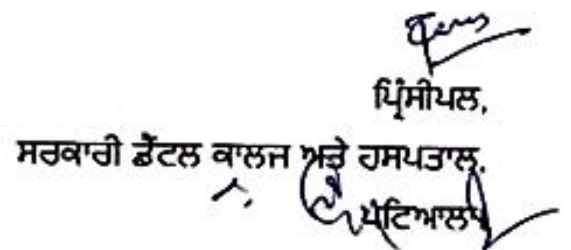 ਪ੍ਰਿੰਸੀਪਲ,
ਸਰਕਾਰੀ ਡੈਂਟਲ ਕਾਲਜ ਅਤੇ ਹਸਪਤਾਲ,
ਪਟਿਆਲਾ